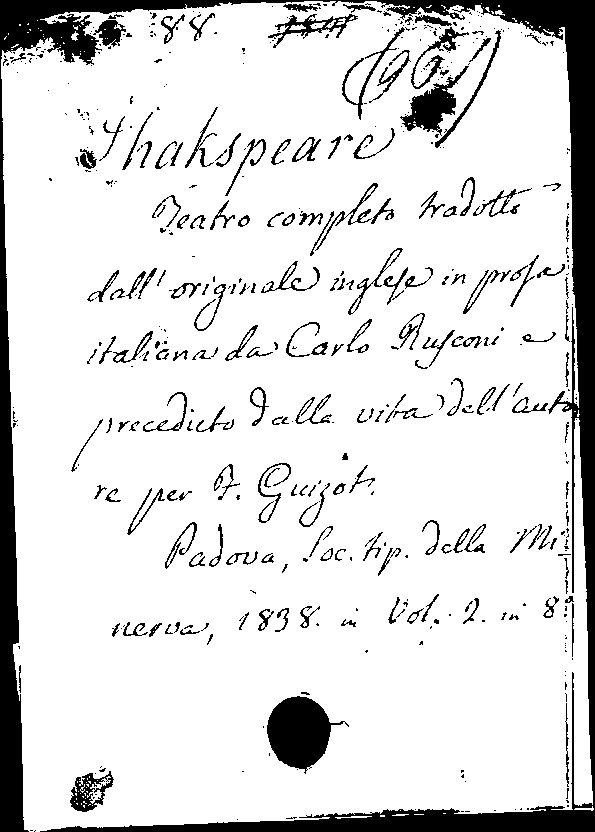 88.
Shakspeare
Teatro completo tradotto
dall' originale inglese in prosa
italiana da Carlo Rusconi e
preceduto dalla vita dell' auto
re per F. Guizot.
Padova, Soc. tip. della Mi-
nerva, 1838. in Vol. 2. in 8.°